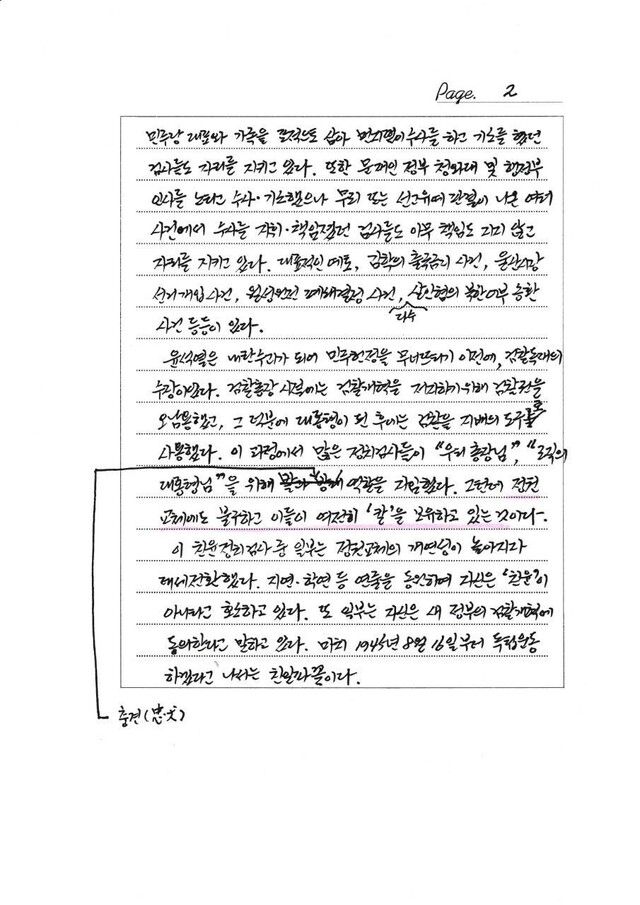 Page. 2
민주당 대표와 가족을 표적으로 삼아 먼지떨이 수사를 하고 기소를 했던
검사들도 자리를 지키고 있다. 또한 문재인 정부 청와대 및 행정부
인사를 노리고 수사·기소했으나 무죄 또는 선고유예 판결이 나온 여러
사건에서 수사를 지휘·책임졌던 검사들도 아무 책임도 지지 않고
자리를 지키고 있다. 대표적인 예로, 김학의 출국금지 사건, 울산시장
선거개입 사건, 월성원전 폐쇄결정 사건, 살인혐의 북한어부 송환
다수
사건 등등이 있다.
윤석열은 내란수괴가 되어 민주헌정을 무너뜨리기 이전에, 검찰독재의
수장이었다. 검찰총장 시절에는 검찰개혁을 저지하기 위해 검찰권을
오남용했고, 그 덕분에 대통령이 된 후에는 검찰을 지배의 도구로
사용했다. 이 과정에서 많은 정치검사들이 “우리 총장님”, “조직의
대통령님”을 위해 역할을 자임했다. 그런데 정권
교체에도 불구하고 이들이 여전히 ‘칼’을 보유하고 있는 것이다.
이 친윤정치검사 중 일부는 정권교체의 개연성이 높아지자
태세전환했다. 지연·학연 등 연줄을 동원하며 자신은 ‘친윤’이
아니라고 호소하고 있다. 또 일부는 자신은 새 정부의 검찰개혁에
동의한다고 말하고 있다. 마치 1945년 8월 16일부터 독립운동
하겠다고 나서는 친일파 꼴이다.
충견(忠犬)